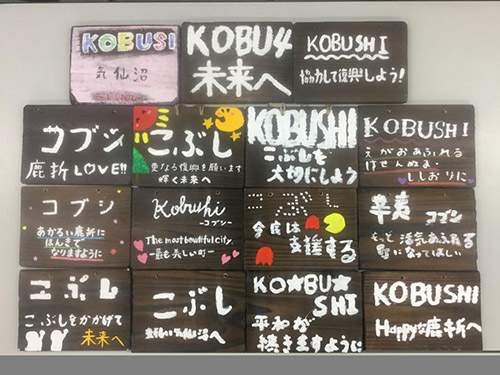 KOBUSI
気仙沼
KOBU4
未来へ
KOBUSHI
協力して復興しよう!
コブシ
鹿折LOVE!!
こぶし
更なる復興を願います
輝く未来へ
KOBUSHI
こぶしを
大切にしよう
KOBUSHI
えがおあふれる
けせんぬま・
ししおりに
コブシ
あかるい鹿折に
ほんきで
なりますように
Kobushi
-コブシ-
The most beautiful city.
最も美しい町
こぶし
今度は
支援する
辛夷 コブシ
もっと活気あふれる
町になってほしい
こぶし
こぶしをかかげて
未来へ
こぶし
気仙沼へ
KO★BU★
SHI
平和が
続きますように
KOBUSHI
Happyな鹿折へ